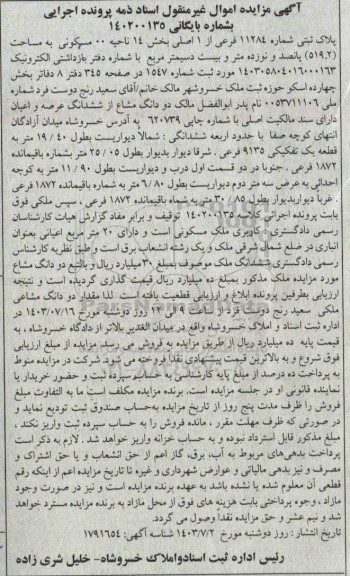 آگهی مزایده اموال غیرمنقول اسناد ذمه پرونده اجرایی
بشماره بایگانی ۱۴۰۲۰۰۱۳۵
پلاک ثبتی شماره ۱۱۲۸۴ فرعی از ۱ اصلی بخش ۱۴ ناحیه ۰۰ مسکونی به مساحت
(۵۱۹.۲) پانصد و نوزده متر و بیست دسیمتر مربع با شماره دفتر بازداشتی الکترونیک
۱۴۰۳۰۵۸۰۴۰۱۶۰۰۰۱۶۳ مورد ثبت شماره ۱۵۴۷ در صفحه ۳۴۵ دفتر ۸ دفاتر بخش
چهارده اسکو حوزه ثبت ملک خسروشهر مالک خانم/آقای سعید رنج دوست فرد شماره
ملی ۰۰۵۳۷۱۱۱۰۶ نام پدر ابوالفضل مالک دو دانگ مشاع از ششدانگ عرصه و اعیان
دارای سند مالکیت اصلی با شماره چاپی ۶۲۰۷۳۹ به آدرس خسروشاه میدان آزادگان
انتهای کوچه صفا با حدود اربعه ششدانگی : شمالا دیواریست بطول ۱۹/۴۰ متر به
قطعه یک تفکیکی ۹۱۳۵ فرعی . شرقا دیوار بدیوار بطول ۲۵/۰۵ متر بشماره باقیمانده
۱۸۷۲ فرعی . جنوبا در دو قسمت اول درب و دیواریست بطول ۱۱/۹۰ متر به کوچه
احداثی به عرض سه متر دوم دیواریست بطول ۶/۸۰ متر به شماره باقیمانده ۱۸۷۲ فرعی
. غربا دیواربدیوار بطول ۳۰/۸۵ متر به شماه باقیمانده ۱۸۷۲ فرعی ، سپس ملکی فوق
بابت پرونده اجرائی کلاسه ۱۴۰۲۰۰۱۳۵ توقیف و برابر مفاد گزارش هیات کارشناسان
رسمی دادگستری : کاربری ملک مسکونی است و دارای ۲۰ متر مربع اعیانی بعنوان
انباری در ضلع شمال شرقی ملک و یک رشته انشعاب برق است و طبق نظریه کارشناس
رسمی دادگستری ششدانگ ملک موصوف بمبلغ ۳۰ میلیارد ریال و بالتبع دو دانگ مشاع
مورد مزایده ملک مذکور بمبلغ ده میلیارد ریال قیمت گذاری گردیده است و نتیجه
ارزیابی بطرفین پرونده ابلاغ و ارزیابی قطعیت یافته است . لذا مقدار دو دانگ مشاعی
ملکی سعید رنج دوست فرد از ساعت ۹ الی ۱۲ روز دوشنبه مورخ ۱۴۰۳/۰۷/۱۶ در
اداره ثبت اسناد و املاک خسروشاه واقع در میدان الغدیر بالاتر از دادگاه خسروشاه ، به
قیمت پایه ده میلیارد ریال از طریق مزایده به فروش می رسد. مزایده از مبلغ ارزیابی
فوق شروع و به بالاترین قیمت پیشنهادی نقدا فروخته می شود. شرکت در مزایده منوط
به پرداخت ده درصد از مبلغ پایه کارشناسی به حساب سپرده ثبت و حضور خریدار یا
نماینده قانونی او در جلسه مزایده است. برنده مزایده مکلف است ما به التفاوت مبلغ
فروش را ظرف مدت پنج روز از تاریخ مزایده به‌حساب صندوق ثبت تودیع نماید و
در صورتی که ظرف مهلت مقرر ، مانده فروش را به حساب سپرده ثبت واریز نکند ،
مبلغ مذکور قابل استرداد نبوده و به حساب خزانه واریز خواهد شد . لازم به ذکر است
پرداخت بدهی‌های مربوط به آب، برق، گاز اعم از حق انشعاب و یا حق اشتراک و
مصرف و نیز بدهی مالیاتی و عوارض شهرداری و غیره تا تاریخ مزایده اعم از اینکه رقم
قطعی آن معلوم شده یا نشده باشد به عهده برنده مزایده است و نیز در صورت وجود
مازاد ، وجوه پرداختی بابت هزینه های فوق از محل مازاد به برنده مزایده مسترد خواهد
شد و نیم عشر و حق مزایده نقداً وصول می گردد.
تاریخ انتشار : روز دوشنبه مورخ ۱۴۰۳/۷/۲ شناسه آگهی: ۱۷۹۱۶۵۴
رئیس اداره ثبت اسنادواملاک خسروشاه- خلیل شری زاده